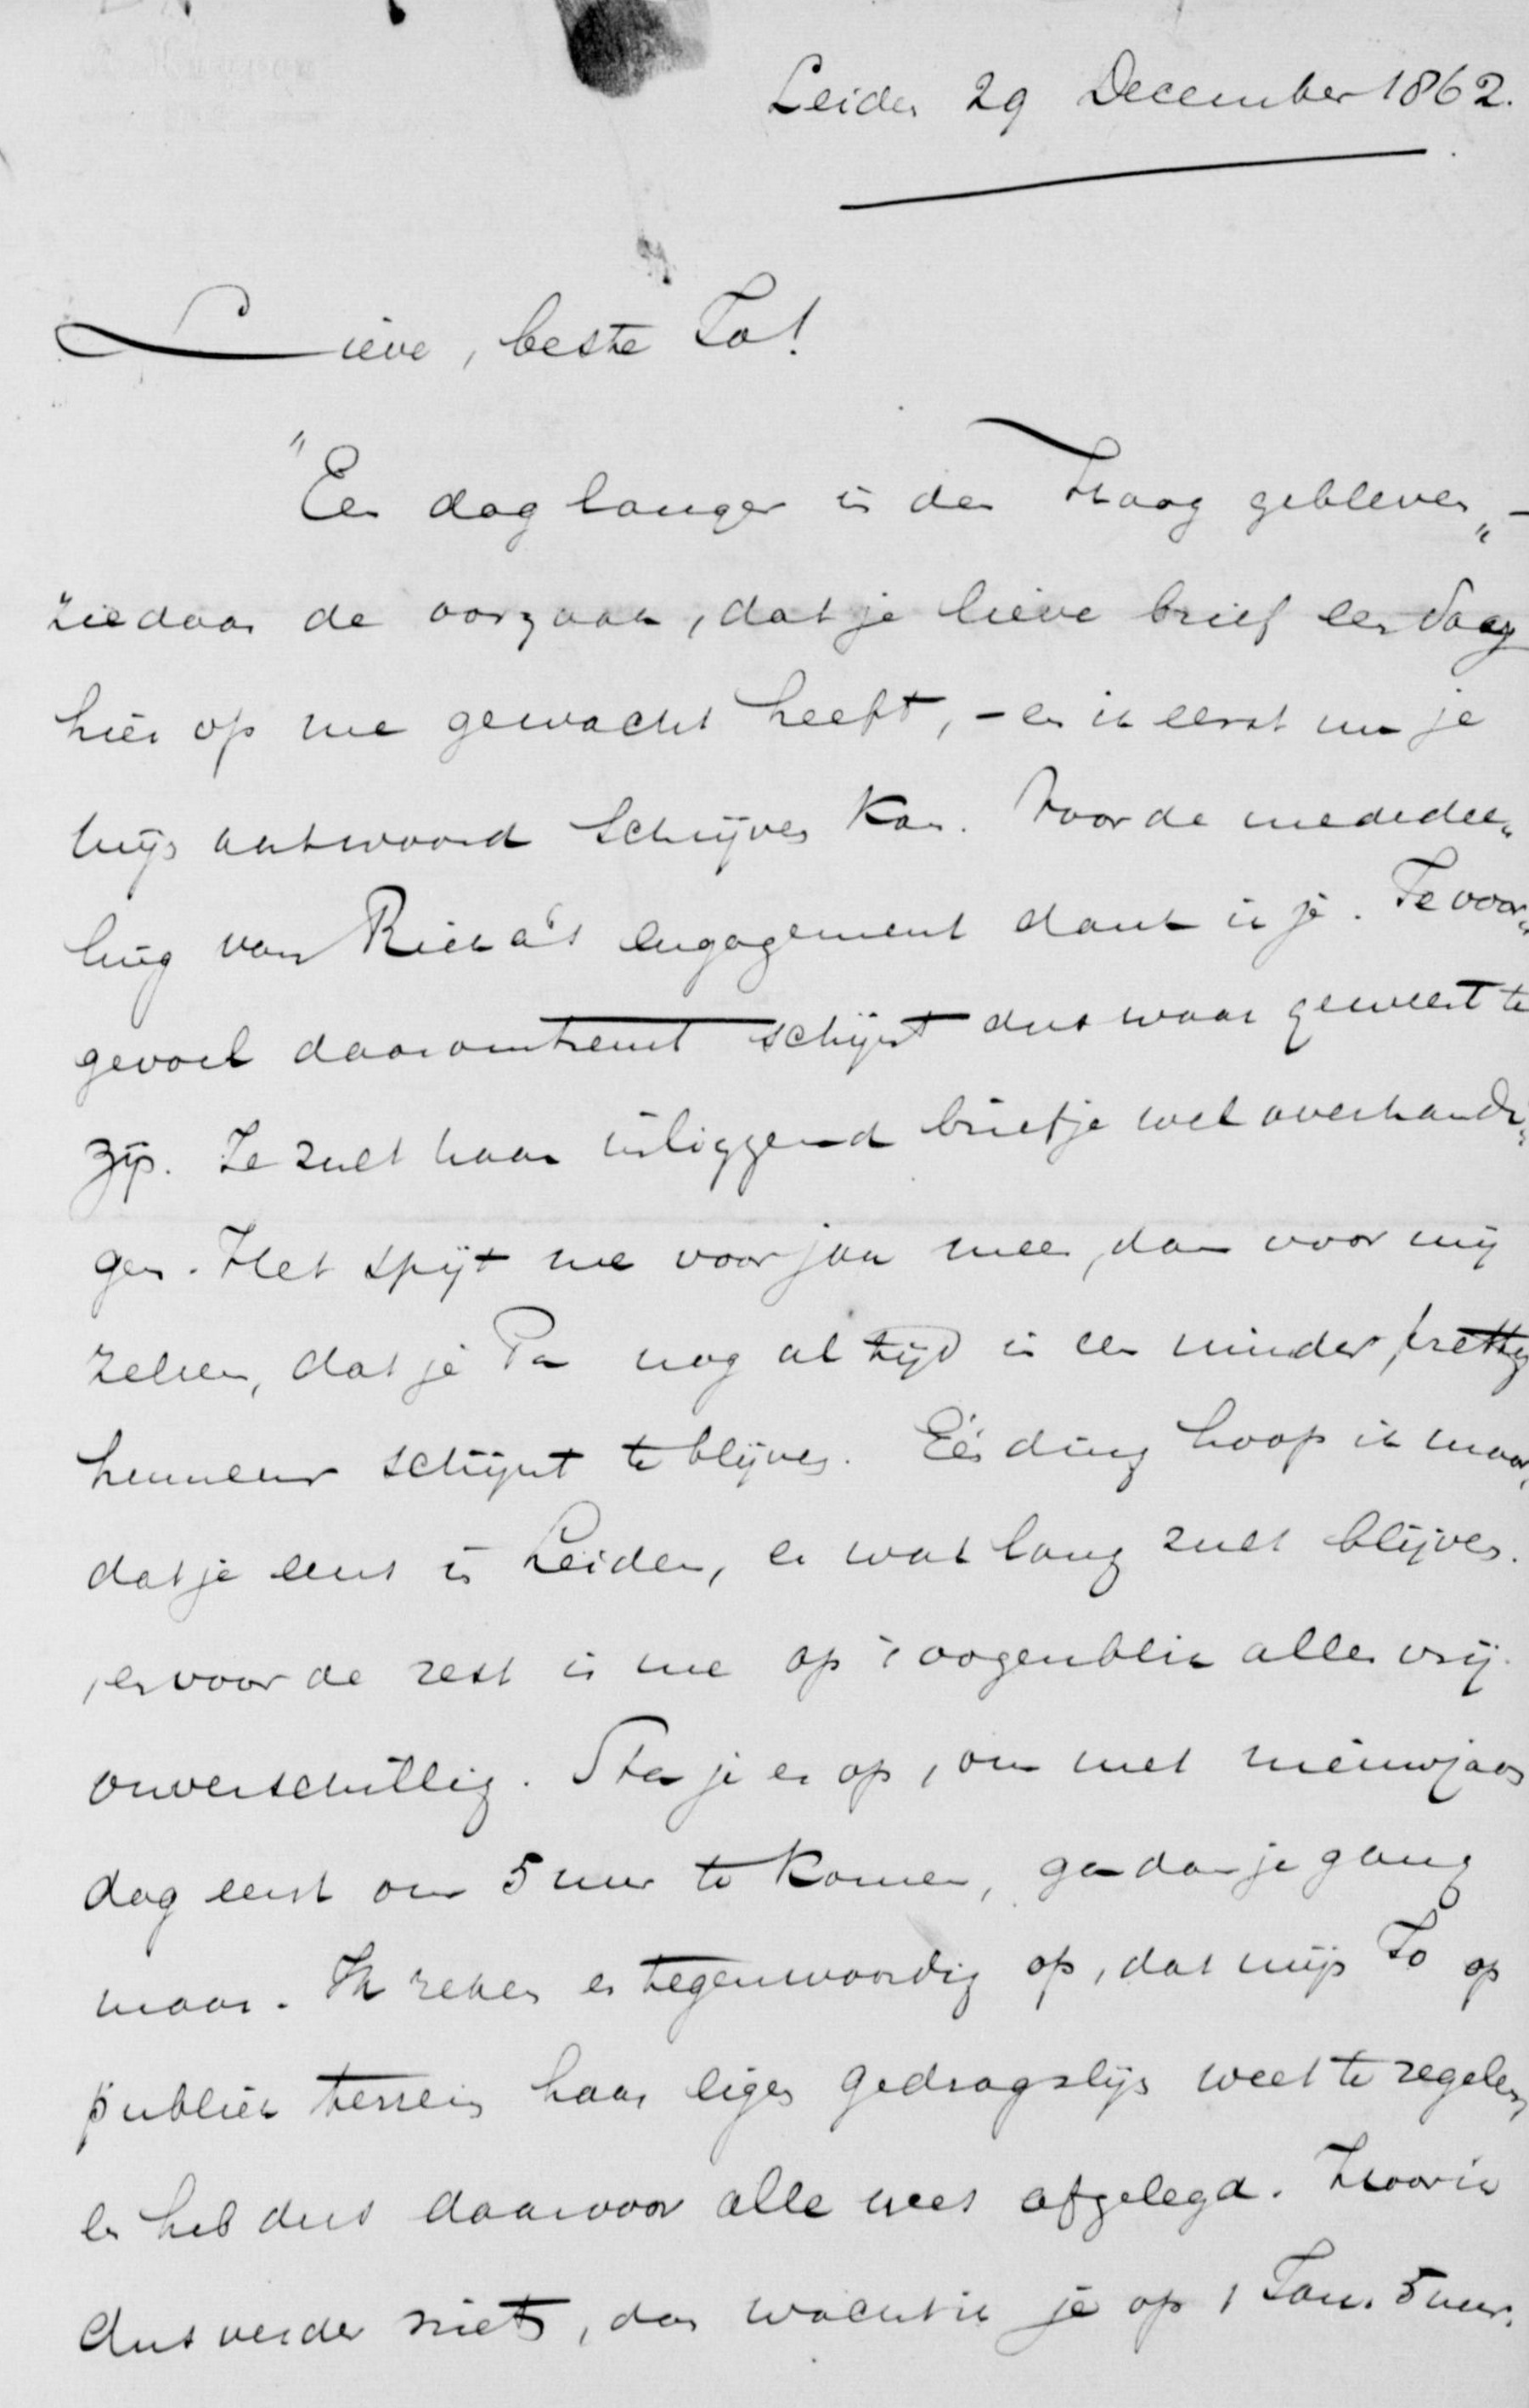 Leiden 29 December 1862.
Lieve, beste Jo!
"Een dag langer in den Haag gebleven„ –
ziedaar de oorzaak, dat je lieve brief een dag
hier op me gewacht heeft, – en ik eerst nu je
mijn antwoord schrijven kan. Voor de mededee„
ling van Rika's engagement dank ik je. Je voor„
gevoel daaromtrent schijnt dus waar geweest te
zijn. Je zult haar inliggend briefje wel overhandi„
gen. Het spijt me voor jou meer, dan voor mij
zelven, dat je Pa nog altijd in een minder prettig
humeur schijnt te blijven. Eén ding hoop ik maar,
dat je eens in Leiden, er wat lang zult blijven.
, en voor de rest is me op 't oogenblik alles vrij
onverschillig. Sta je er op, om met nieuwjaars
dag eerst om 5 uur te komen, ga dan je gang
maar. Ik reken er tegenwoordig op, dat mijn Jo op
publiek terrein haar eigen gedragslijn weet te regelen,
en heb dus daarvoor alle vrees afgelegd. Hoor ik
dus verder niets, dan wacht ik je op 1 Jan. 5 uur.